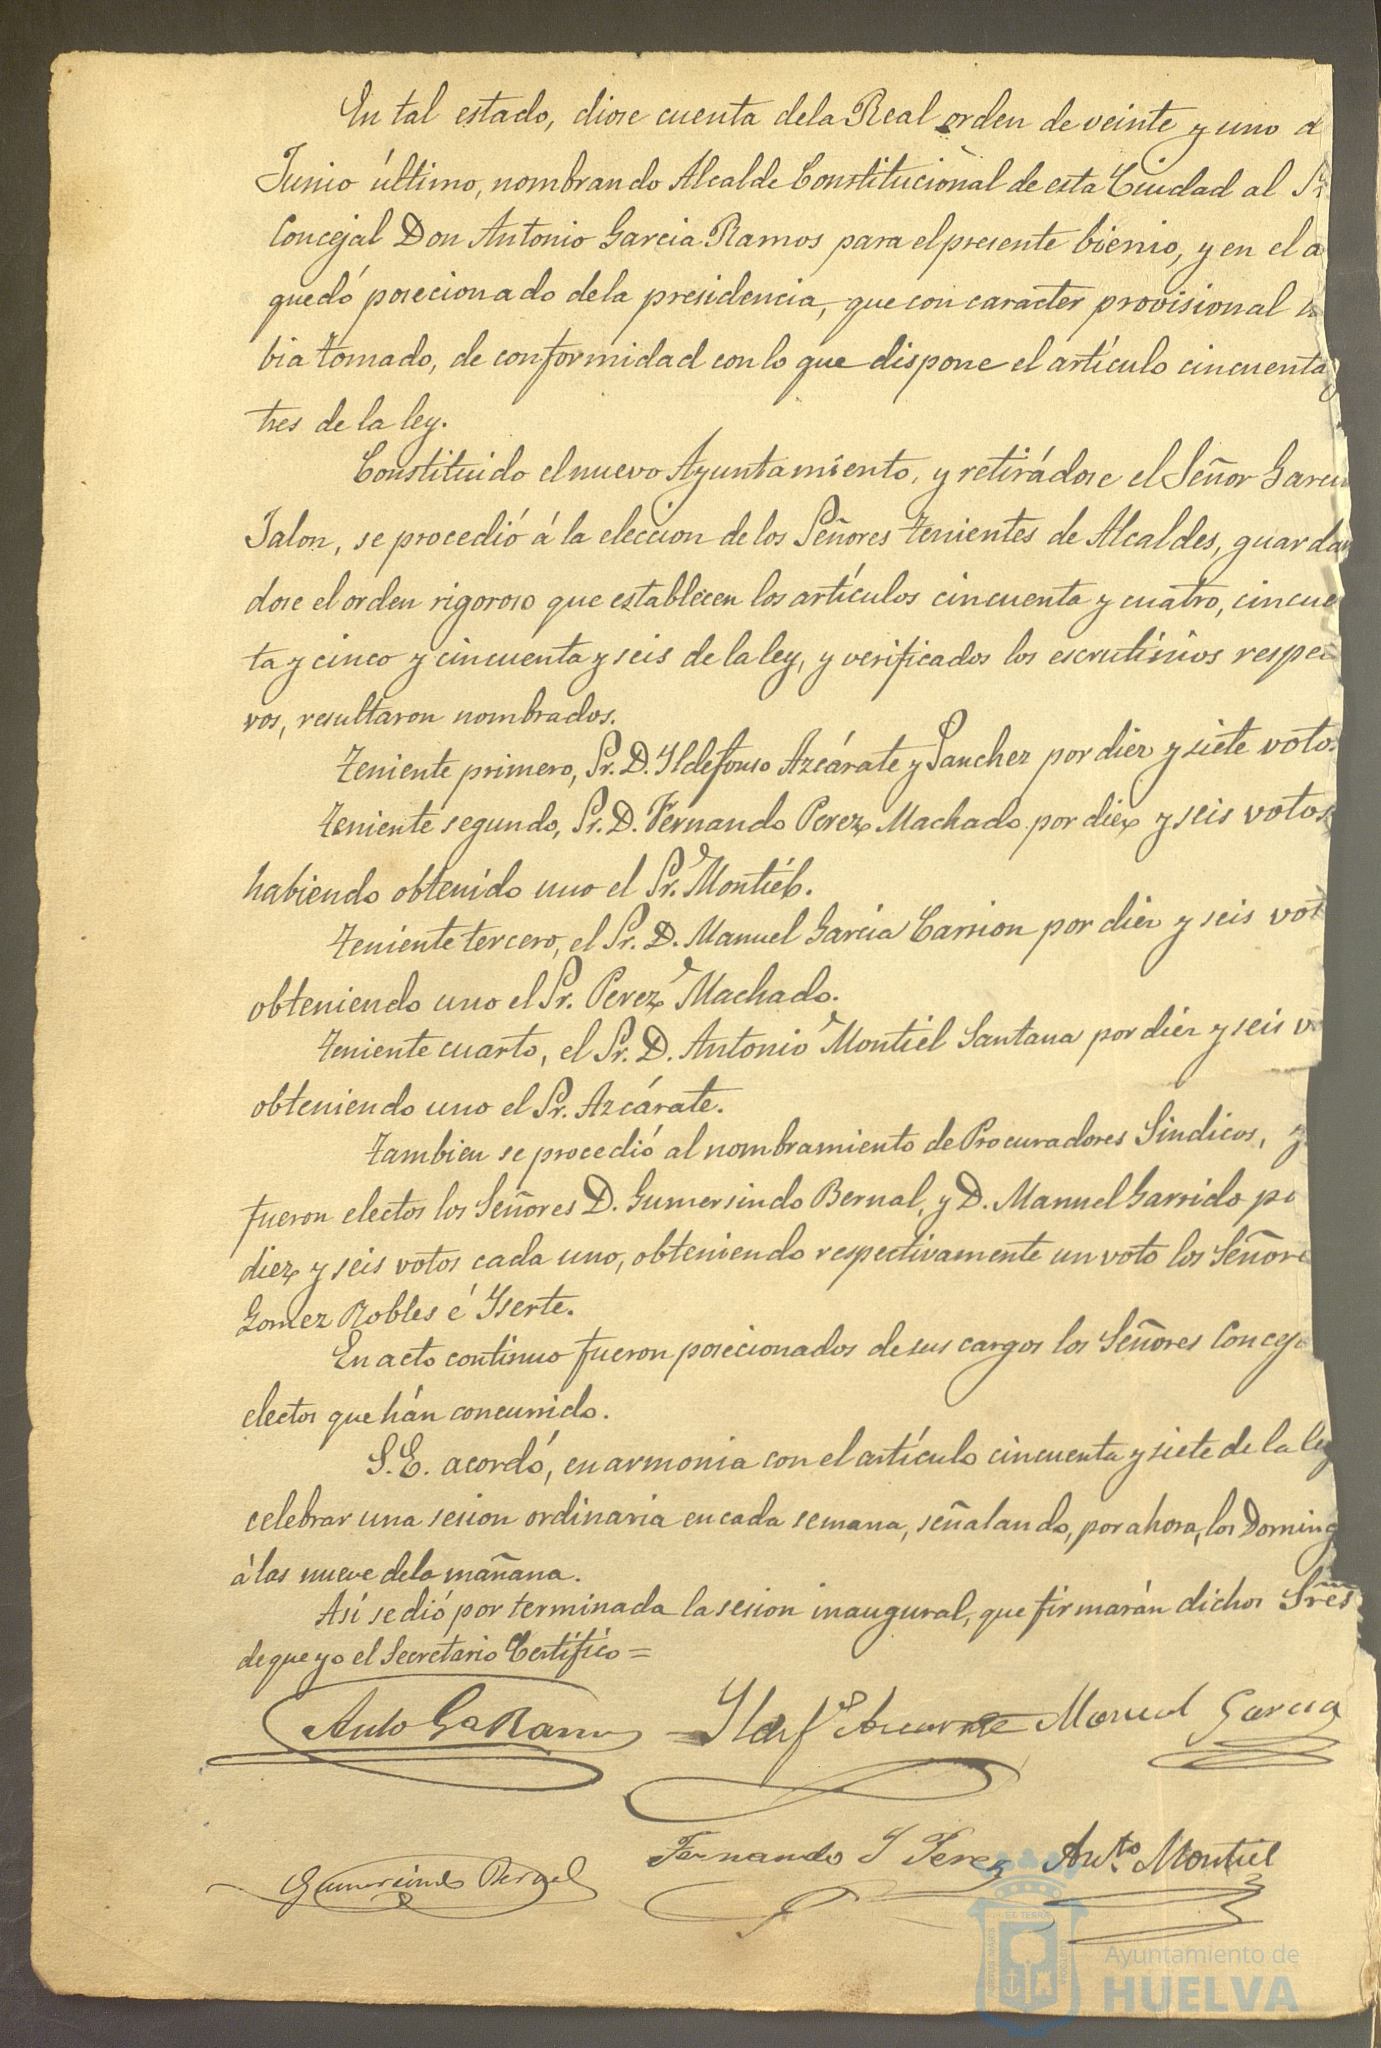 En tal estado, diose cuenta dela Real orden de veinte y uno d
Junio último, nombrando Alcalde Constitucional de esta Ciudad al Sr
Concejal Don Antonio Garcia Ramos para el presente bienio, y en el a
quedó posecionado dela presidencia, que con caracter provisional h
bia tomado, de conformidad con lo que dispone el artículo cincuenta y
tres de la ley.
Constituido el nuevo Ayuntamiento, y retirádose el Señor Garcia
Jalon, se procedió á la eleccion de los Señores Tenientes de Alcaldes, guardan
dose el orden rigoroso que establecen los artículos cincuenta y cuatro, cincue
ta y cinco y cincuenta y seis de la ley, y verificados los escrutinios respec
vos, resultaron nombrados.
Teniente primero, Sr. D. Yldefonso Azcárate y Sanchez por diez y siete votos
Teniente segundo, Sr. D. Fernando Perez Machado por diez y seis votos
habiendo obtenido uno el Sr. Montiél.
Teniente tercero, el Sr. D. Manuel Garcia Carrion por diez y seis vot
obteniendo uno el Sr. Perez Machado.
Teniente cuarto, el Sr. D. Antonio Montiel Santana por diez y seis v
obteniendo uno el Sr. Azcárate.
Tambien se procedió al nombramiento de Procuradores Sindicos, y
fueron electos los Señores D. Gumersindo Bernal, y D. Manuel Garrido po
diez y seis votos cada uno, obteniendo respectivamente un voto los Señore
Gomez Robles é Yserte.
En acto continuo fueron posecionados de sus cargos los Señores Conceja
electos que hán concurrido.
S.E. acordó, en armonia con el artículo cincuenta y siete de la ley
celebrar una sesion ordinaria en cada semana, señalando, por ahora, los Doming
á las nueve dela mañana.
Así se dió por terminada la sesion inaugural, que firmarán dichos Sres
de que yo el Secretario Certifico =
Anto Ga Ramos Yldefso Azcarate Manuel Garcia
Gumersindo Bernal Fernando Perez Anto Montiel
Ayuntamiento de
HUELVA